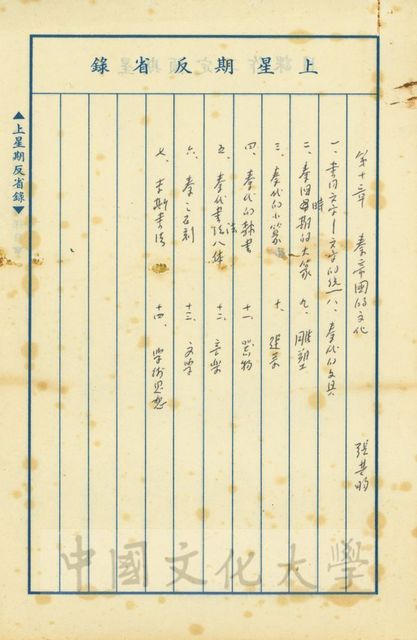 上星期反省錄
▲上星期反省錄▼
第十三章 秦帝國的文化 張其昀
一、書同文字—文字的統一 八、秦代的文具
二、秦國時期的大篆 九、雕塑
三、秦代的小篆 十、
四、秦代的隸書 十一、器物
五、秦代書法八体 十二、音樂
六、秦之石刻 十三、文學
七、李斯書法 十四、學術思想
中國文化大學